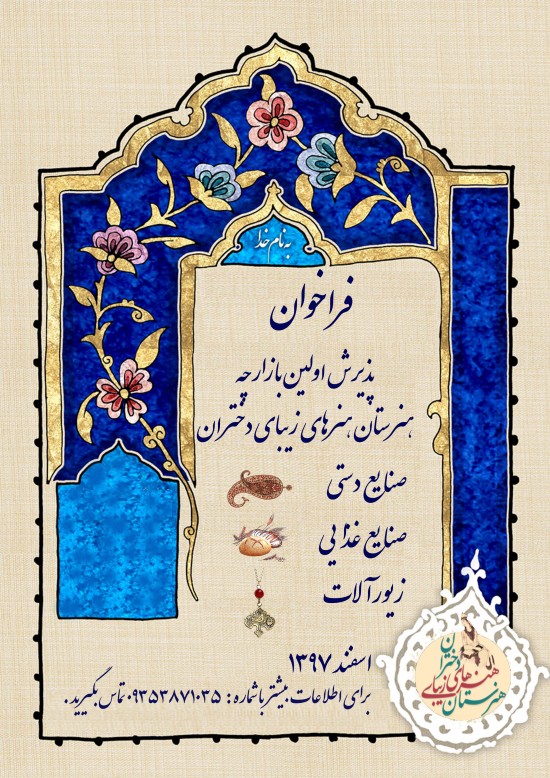 به نام خدا
فراخوان
پذیرش اولین بازارچه
هنرستان هنرهای زیبای دختران
صنایع دستی
صنایع غذایی
زیورآلات
اسفند ۱۳۹۷
برای اطلاعات بیشتر با شماره : ۰۹۳۵۳۸۷۱۰۳۵ تماس بگیرید .
هنرستان هنرهای زیبای دختران